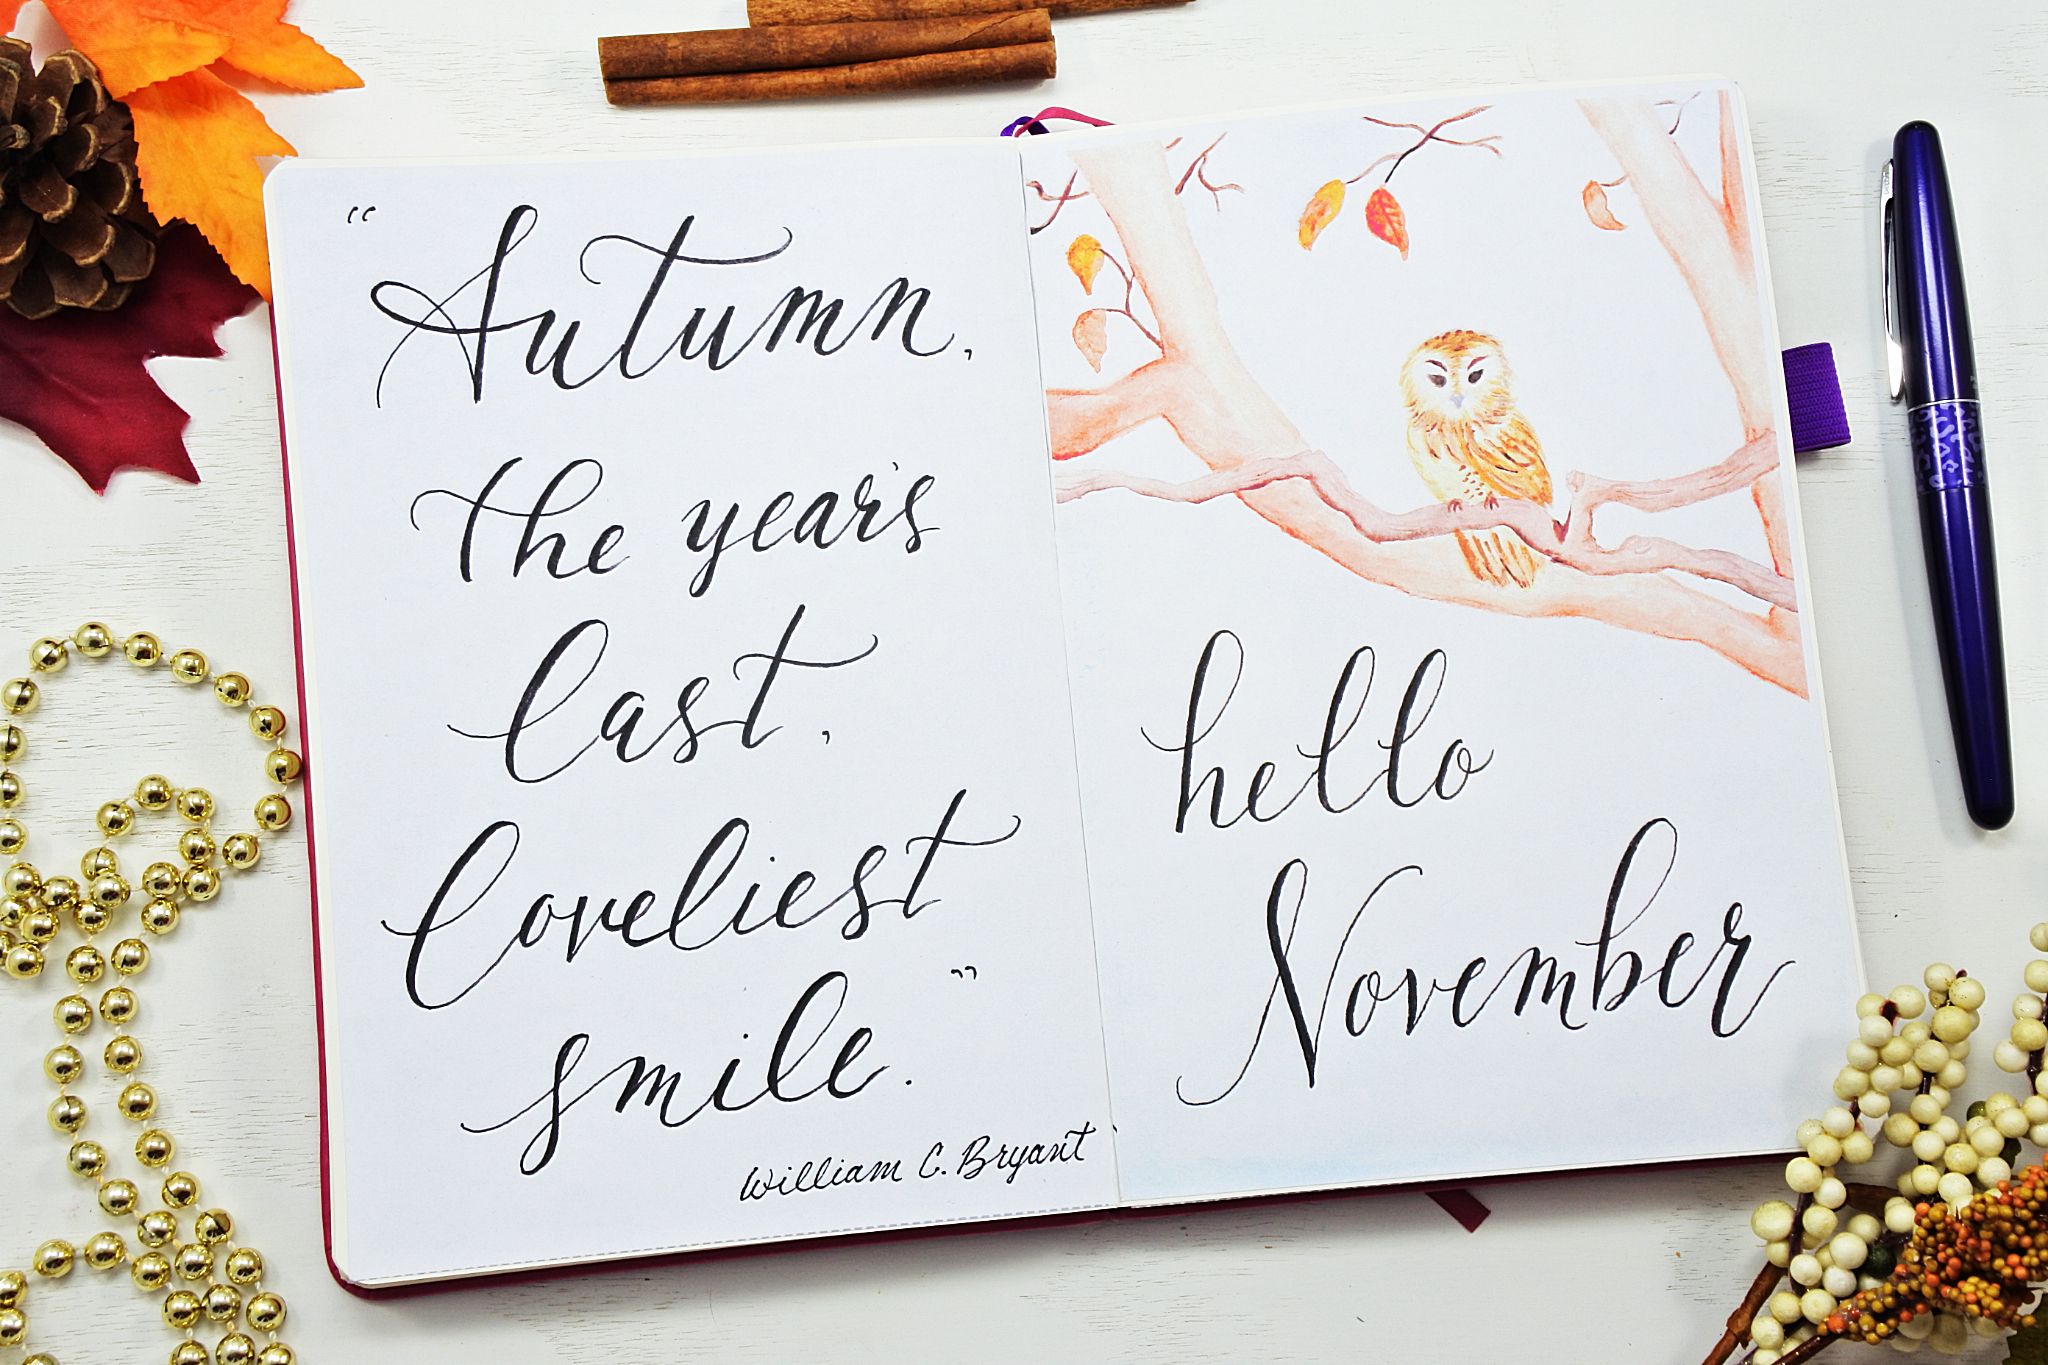 "Autumn,
the year's
last,
loveliest
smile."
William C. Bryant
hello
November